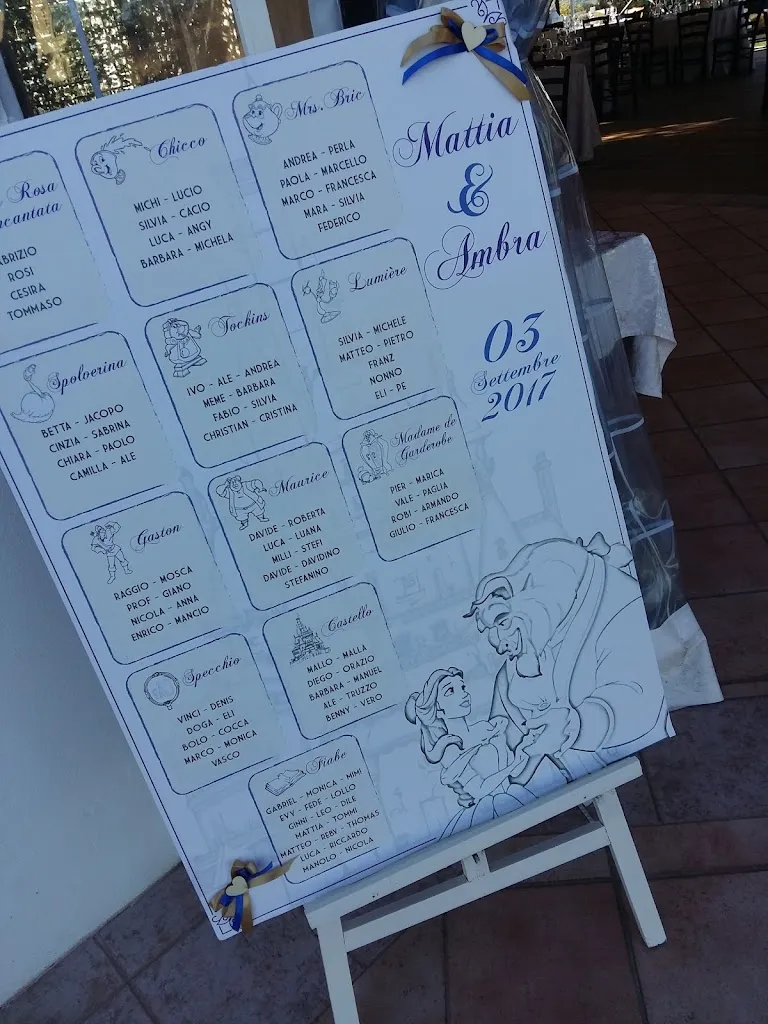 Mattia
&
Ambra
03
Settembre
2017
Rosa
ROSI
CESIRA
TOMMASO
Chicco
MICHI - LUCIO
SILVIA - CACIO
LUCA - ANGY
BARBARA - MICHELA
Mrs. Bric
ANDREA - PERLA
PAOLA - MARCELLO
MARCO - FRANCESCA
MARA - SILVIA
FEDERICO
Spolverina
BETTA - JACOPO
CINZIA - SABRINA
CHIARA - PAOLO
CAMILLA - ALE
Tockins
IVO - ALE - ANDREA
MEME - BARBARA
FABIO - SILVIA
CHRISTIAN - CRISTINA
Lumière
SILVIA - MICHELE
MATTEO - PIETRO
FRANZ
NONNO
ELI - PE
Gaston
RAGGIO - MOSCA
PROF - GIANO
NICOLA - ANNA
ENRICO - MANCIO
Maurice
DAVIDE - ROBERTA
LUCA - LUANA
MILLI - STEFI
DAVIDE - DAVIDINO
STEFANINO
Madame de
Garderobe
PIER - MARICA
VALE - PAGLIA
ROBI - ARMANDO
GIULIO - FRANCESCA
Specchio
VINCI - DENIS
DOGA - ELI
BOLO - COCCA
MARCO - MONICA
VASCO
Castello
MALLO - MALLA
DIEGO - ORAZIO
BARBARA - MANUEL
ALE - TRUZZO
BENNY - VERO
Fiabe
GABRIEL - MONICA - MIMI
EVY - FEDE - LOLLO
GINNI - LEO - DILE
MATTIA - TOMMI
MATTEO - REBY - THOMAS
LUCA - RICCARDO
MANOLO - NICOLA